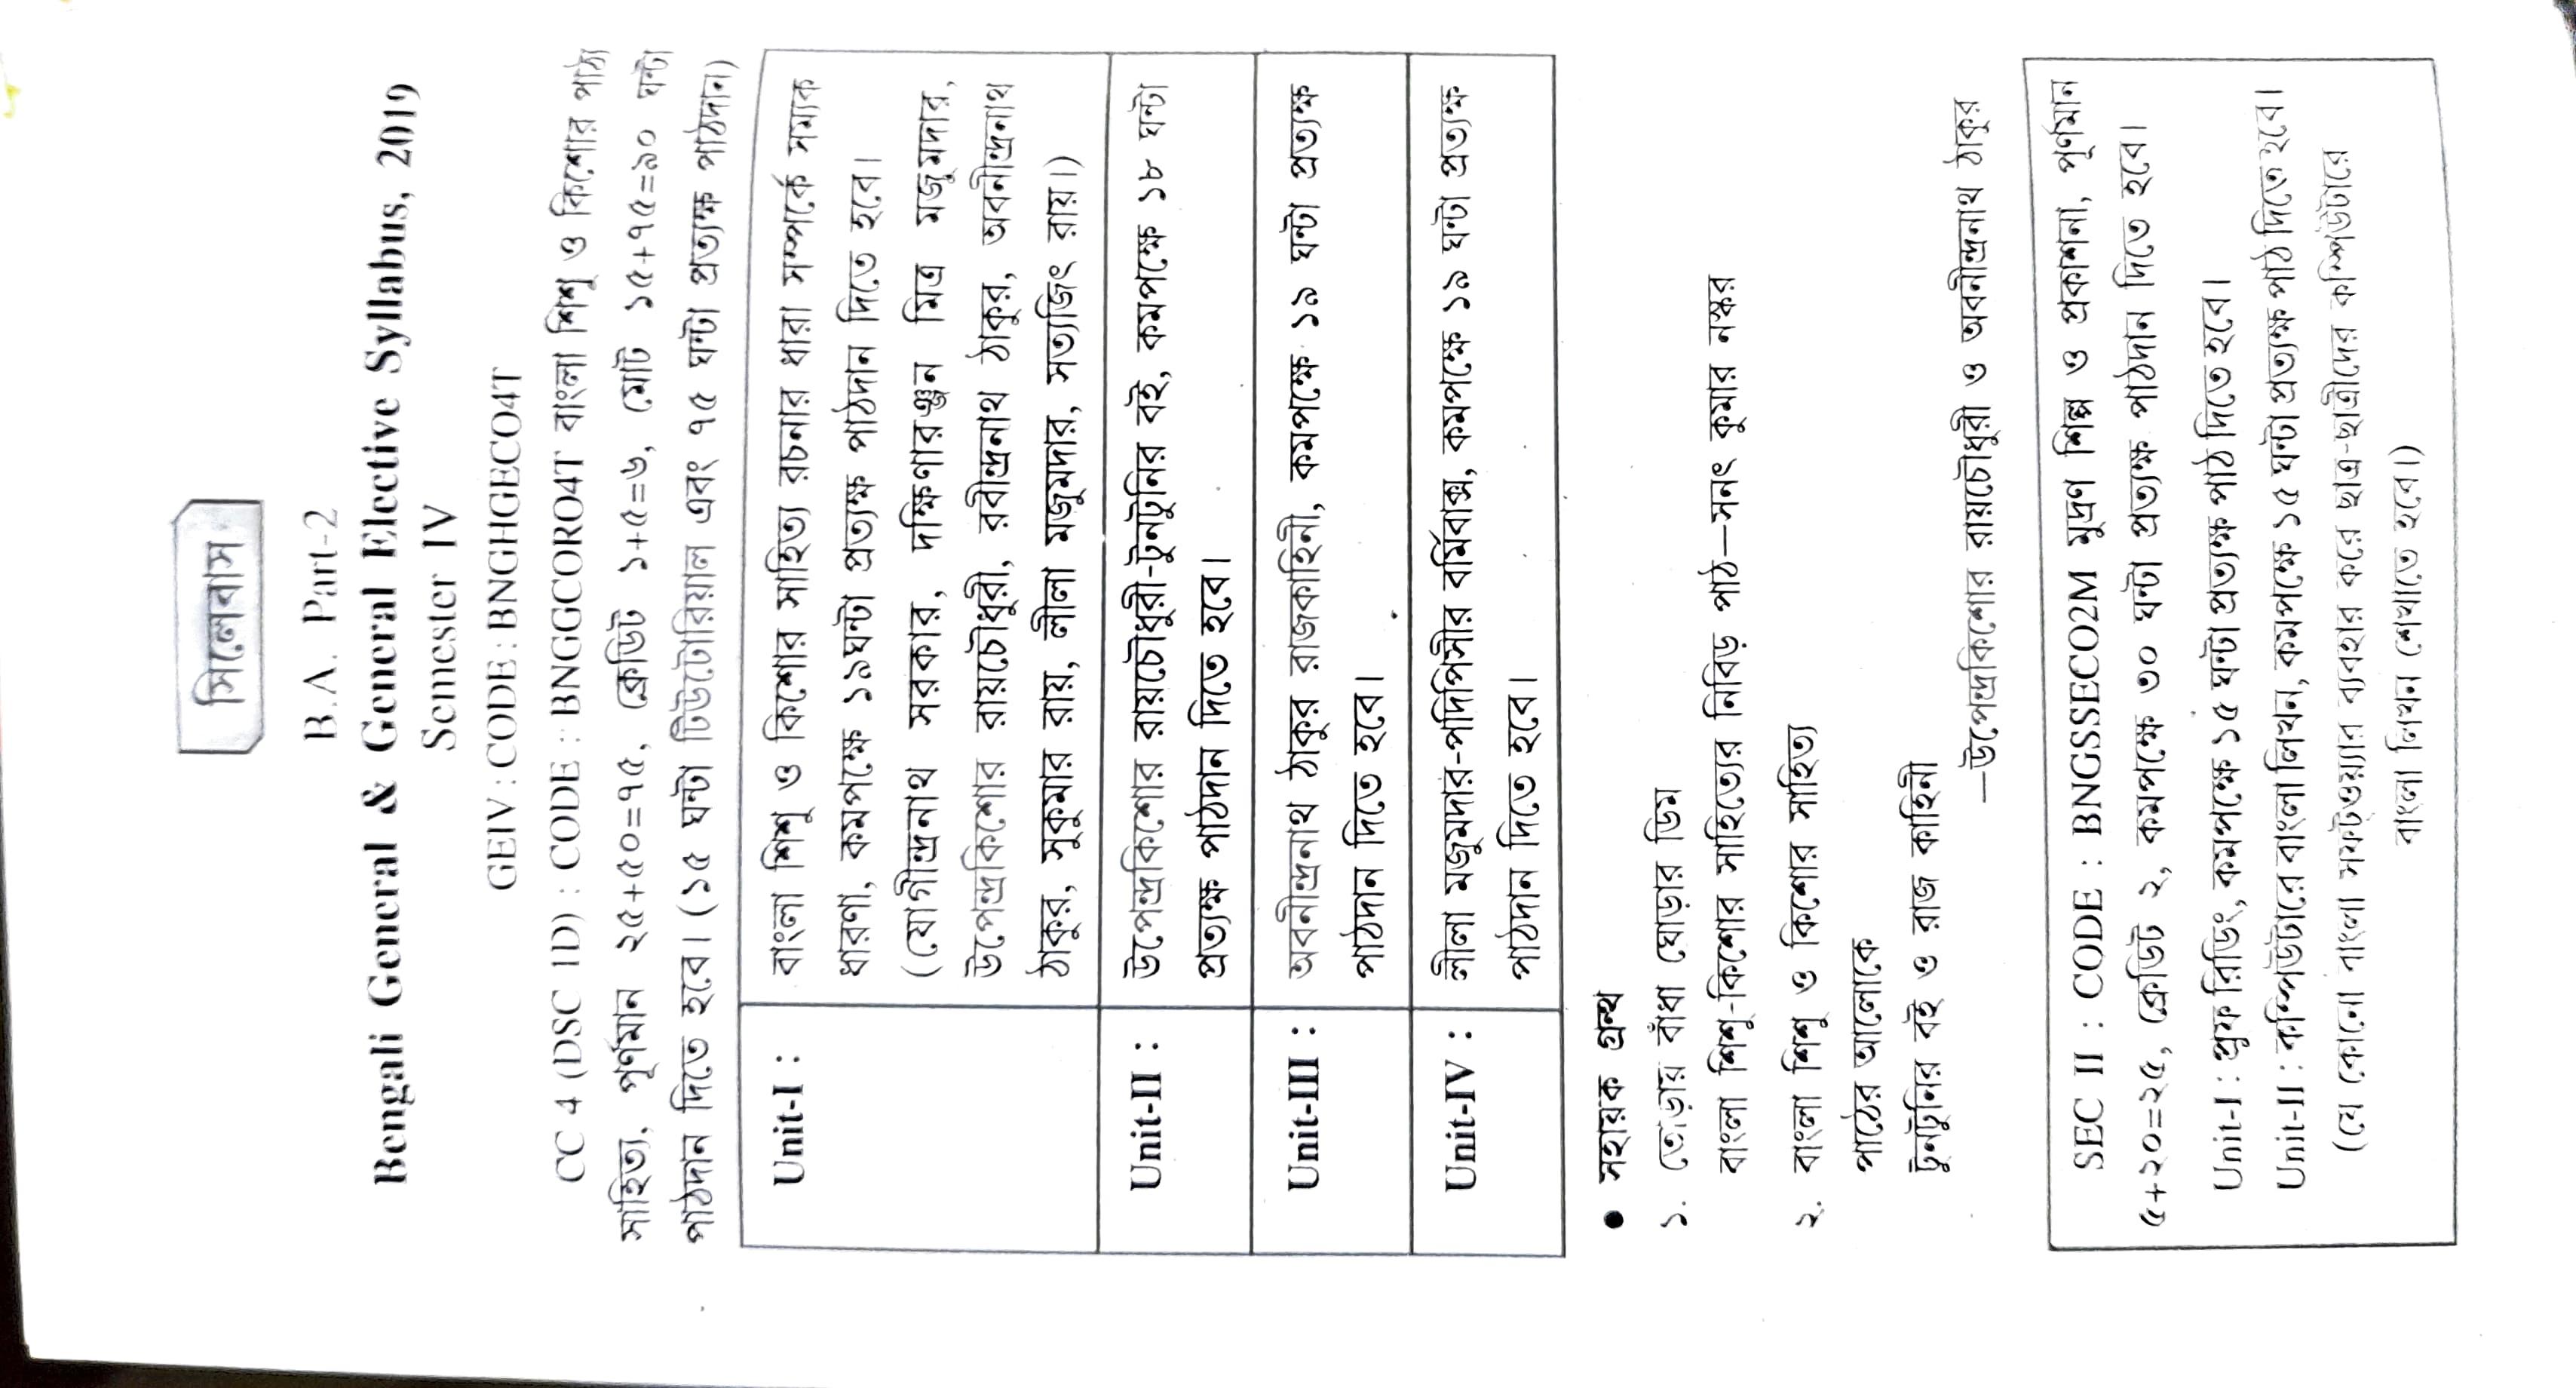 সিলেবাস
B.A. Part-2
Bengali General & General Elective Syllabus, 2019
Semester IV
GEIV : CODE : BNGHGECO4T
CC 4 (DSC 1D) : CODE : BNGGCORO4T বাংলা শিশু ও কিশোর পাঠ্য
সাহিত্য, পূর্ণমান ২৫+৫০=৭৫, ক্রেডিট ১+৫=৬, মোট ১৫+৭৫=৯০ ঘন্টা
পাঠদান দিতে হবে। (১৫ ঘন্টা টিউটোরিয়াল এবং ৭৫ ঘন্টা প্রত্যক্ষ পাঠদান)
Unit-I : বাংলা শিশু ও কিশোর সাহিত্য রচনার ধারা সম্পর্কে সম্যক
ধারণা, কমপক্ষে ১৯ঘন্টা প্রত্যক্ষ পাঠদান দিতে হবে।
(যোগীন্দ্রনাথ সরকার, দক্ষিণারঞ্জন মিত্র মজুমদার,
উপেন্দ্রকিশোর রায়চৌধুরী, রবীন্দ্রনাথ ঠাকুর, অবনীন্দ্রনাথ
ঠাকুর, সুকুমার রায়, লীলা মজুমদার, সত্যজিৎ রায়।)
Unit-II : উপেন্দ্রকিশোর রায়চৌধুরী-টুনটুনির বই, কমপক্ষে ১৮ ঘন্টা
প্রত্যক্ষ পাঠদান দিতে হবে।
Unit-III : অবনীন্দ্রনাথ ঠাকুর রাজকাহিনী, কমপক্ষে ১৯ ঘন্টা প্রত্যক্ষ
পাঠদান দিতে হবে।
Unit-IV : লীলা মজুমদার-পদিপিসীর বর্মিবাক্স, কমপক্ষে ১৯ ঘন্টা প্রত্যক্ষ
পাঠদান দিতে হবে।
● সহায়ক গ্রন্থ
১. তোড়ায় বাঁধা ঘোড়ার ডিম
বাংলা শিশু-কিশোর সাহিত্যের নিবিড় পাঠ—সনৎ কুমার নস্কর
২. বাংলা শিশু ও কিশোর সাহিত্য
পাঠের আলোকে
টুনটুনির বই ও রাজ কাহিনী
—উপেন্দ্রকিশোর রায়চৌধুরী ও অবনীন্দ্রনাথ ঠাকুর
SEC II : CODE : BNGSSECO2M মুদ্রণ শিল্প ও প্রকাশনা, পূর্ণমান
৫+২০=২৫, ক্রেডিট ২, কমপক্ষে ৩০ ঘন্টা প্রত্যক্ষ পাঠদান দিতে হবে।
Unit-I : প্রুফ রিডিং, কমপক্ষে ১৫ ঘন্টা প্রত্যক্ষ পাঠ দিতে হবে।
Unit-II : কম্পিউটারে বাংলা লিখন, কমপক্ষে ১৫ ঘন্টা প্রত্যক্ষ পাঠ দিতে হবে।
(যে কোনো বাংলা সফট্ওয়্যার ব্যবহার করে ছাত্র-ছাত্রীদের কম্পিউটারে
বাংলা লিখন শেখাতে হবে।)